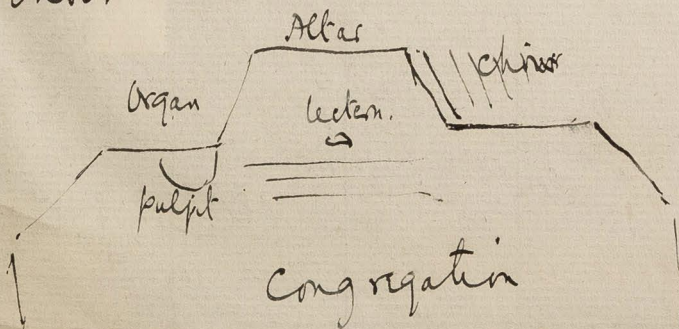 Altar
Organ
lectern.
pulpit
Congregation